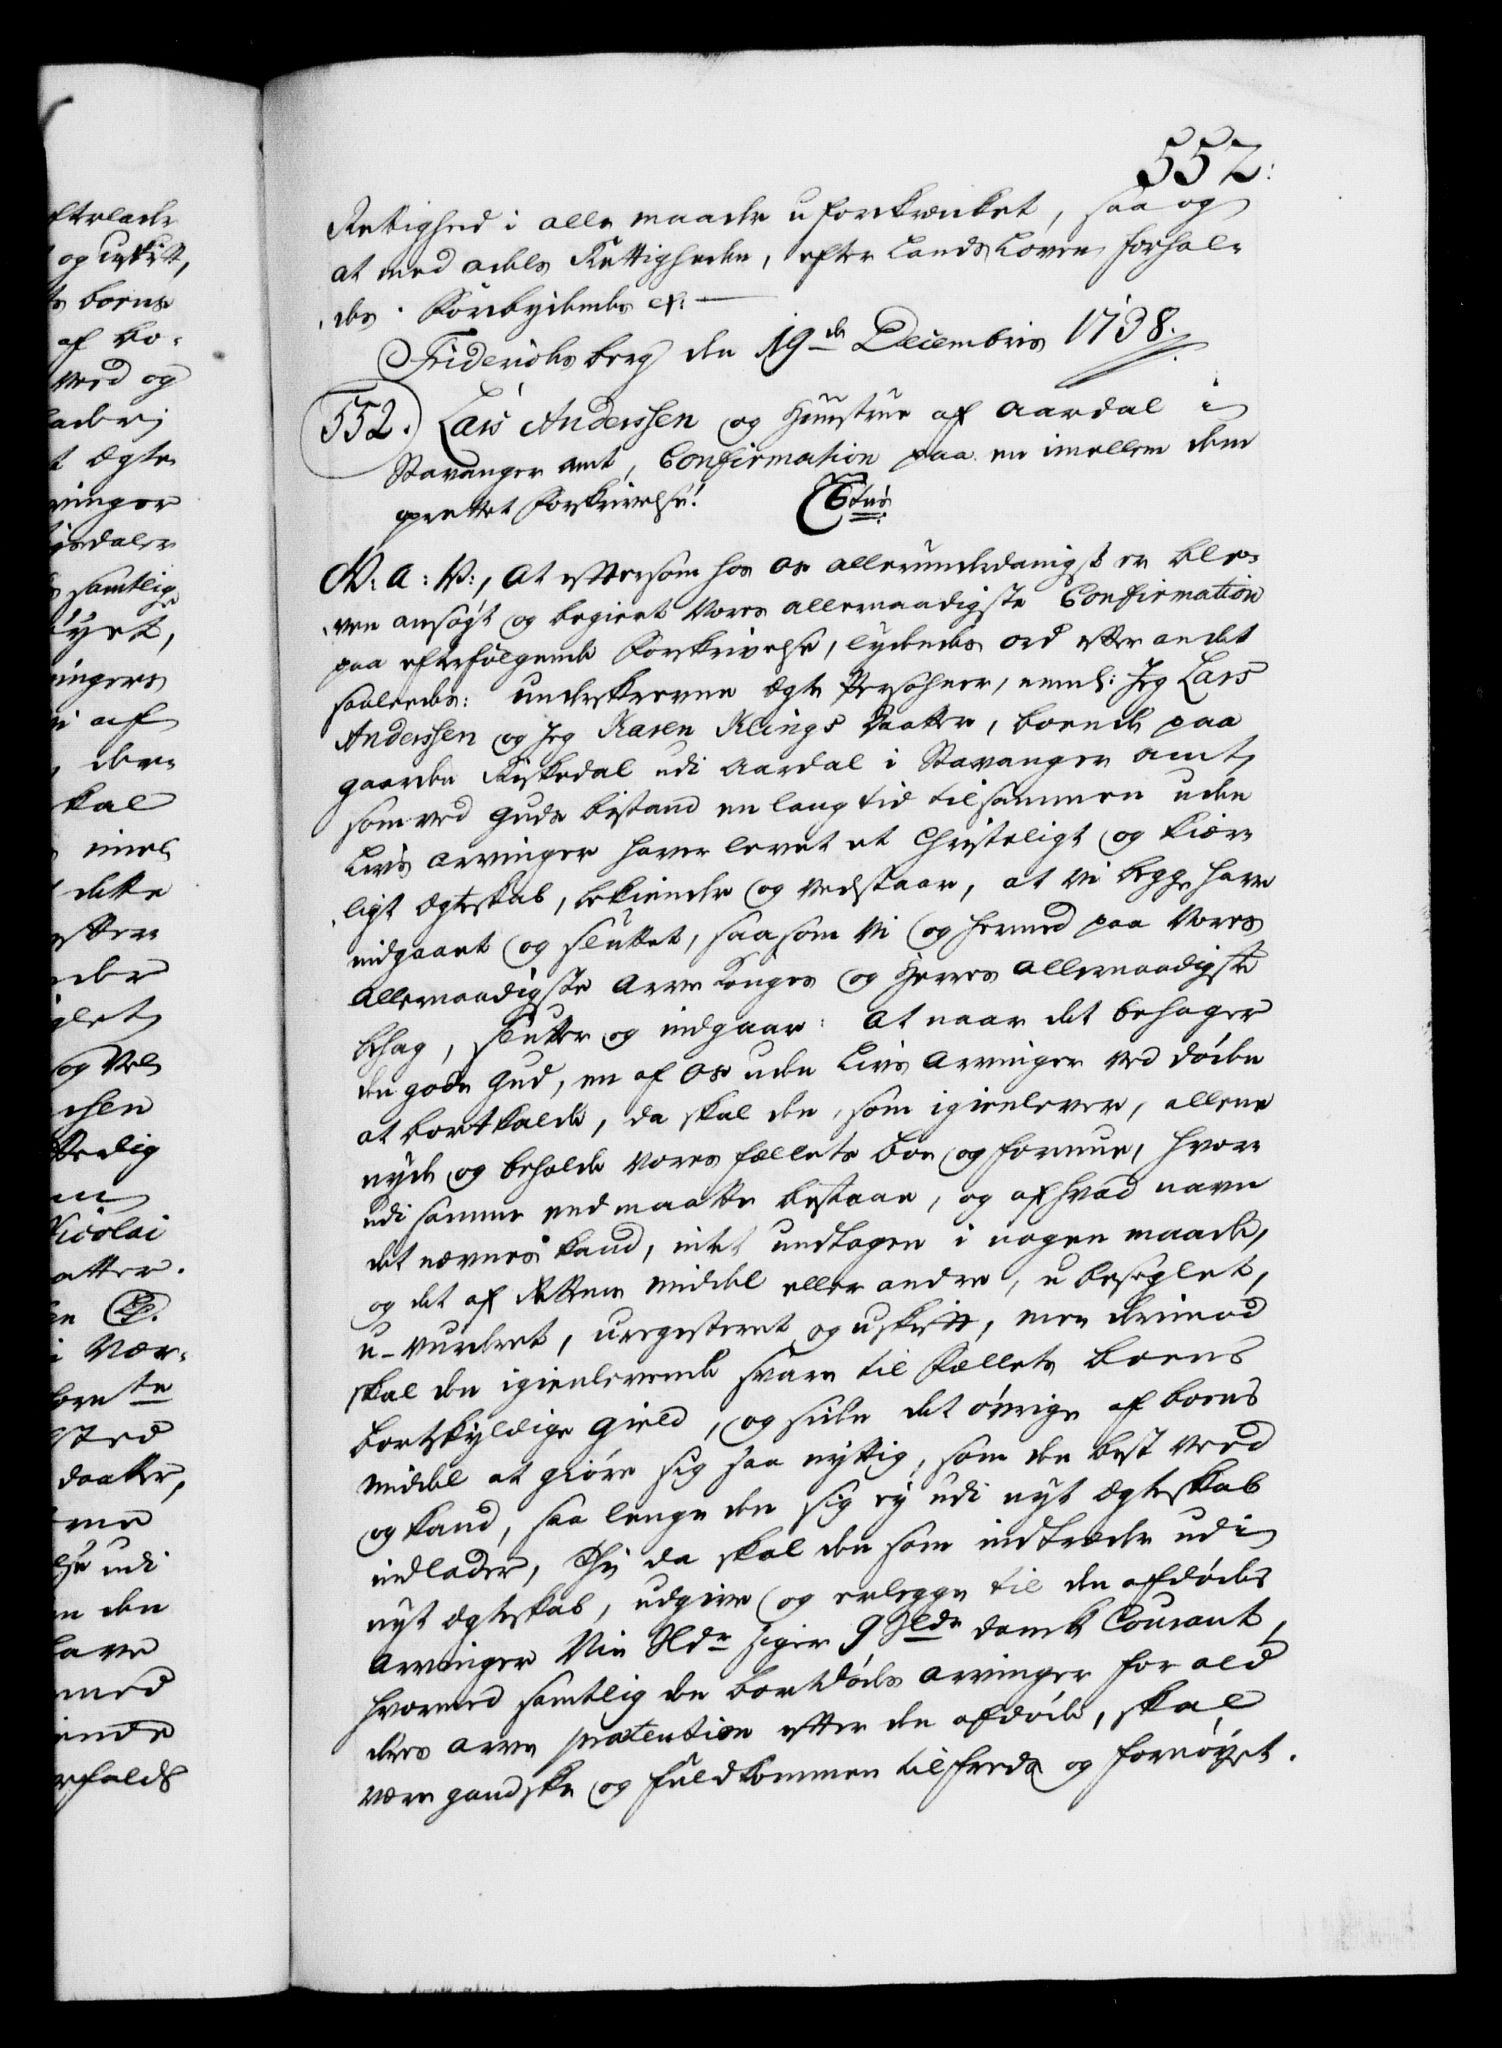 552:
Rettighed i alle maade uforkrænket, saa og
at med adels Rettigheder, efter Lands Loven forhol-
des. Forbydendes etc:
Friderichsberg den 19de Decembris 1738.
552. Lars Anderssen og Hustrue af Aardal i
Stavanger amt, Confirmation paa en imellem dem
oprettet Forskrivelse!
C6. A: V:, At eftersom hos os allerunderdanigst er ble-
ven ansøgt og begiert Vores allernaadigste Confirmation
paa efterfølgende Forskrivelse, lydendes ord efter andet
saaledes: underskrevne Ægte Persohner, neml: Jeg Lars
Anderssen og Jeg Karen Klings Daatter, boende paa
gaarden Riskedal udi Aardal i Stavanger amt,
som ved Guds bistand en lang tid tilsammen uden
Livs arvinger haver levet et Christeligt og kiær-
ligt Ægteskab, bekiender og vedstaar, at Vi begge have
indgaaet og sluttet, saasom Vi og hermed paa Vores
allernaadigste Arve Konges og Herres allernaadigste
behag, slutter og indgaar: At naar det behager
den gode Gud, en af os uden Livs Arvinger ved døden
at bortkalde, da skal den, som igienlever, allene
nyde og beholde Vores fælles boe og formue, hvor-
udi samme end maatte bestaae, og af hvad navn
det nævnes kand, intet undtagen i nogen maade,
og det af Rettens middel eller andre, u beseglet,
u-vurderet, uregisteret og uskift, men derimod
skal den igienlevende svare til Fællets boens
bortskyldige gield, og siden det øvrige af boens
middel at giøre sig saa nyttig, som den best veed
og kand, saa lenge den sig ey udi nyt Ægteskab
indlader, Thi da skal den som indtræder udi
nyt Ægteskab, udgive og erlegge til den afdødes
arvinger Nie Rdr siger 9 Rdr dansk Courant,
hvormed samtlig den bortdødes arvinger for ald
deres arve prætention efter den afdøde, skal
være gandske og fuldkommen tilfreds og fornøyet.